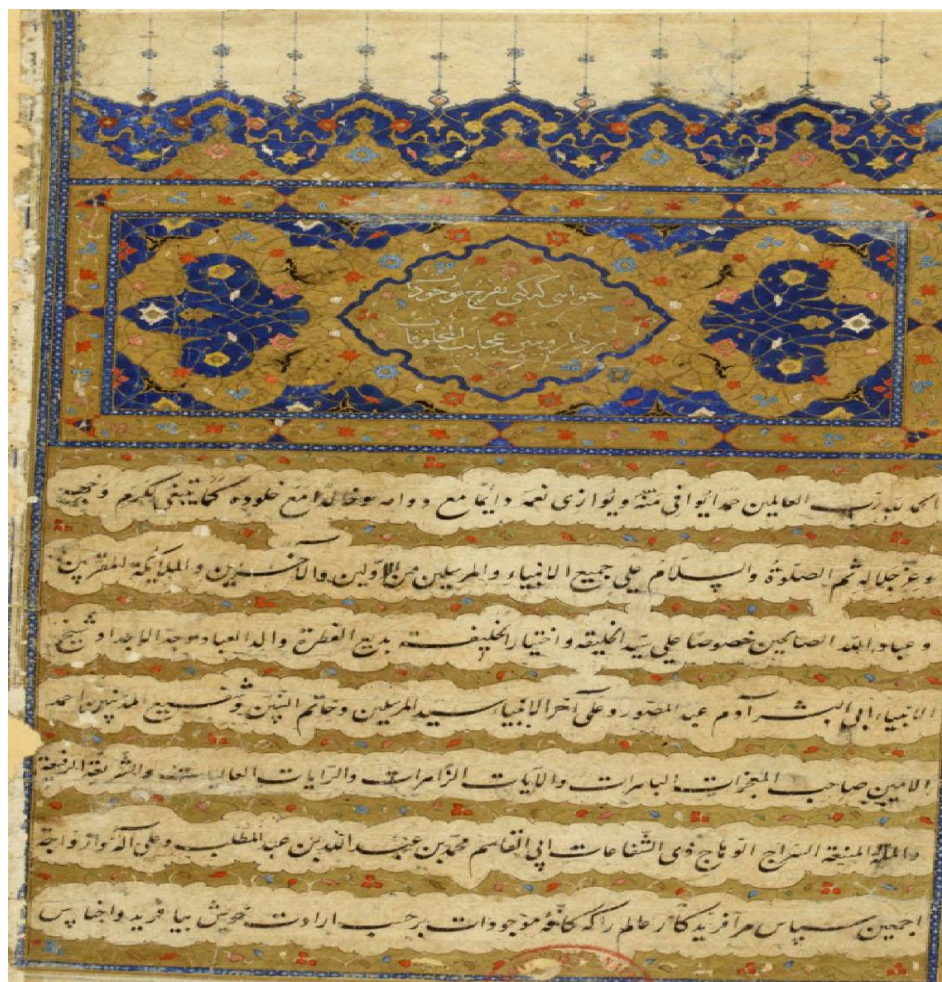 خواهی که کنی تفرج موجودات
بردار و ببین عجایب المخلوقات
الحمد لله رب العالمین حمدا یوافی مننه و یوازی نعمه دائما مع دوامه و خالدا مع خلوده کما ینبغی لکرم وجهه
و عز جلاله ثم الصلوة والسلام علی جمیع الانبیاء والمرسلین من الاولین والآخرین والملائکة المقربین
و عباد الله الصالحین خصوصا علی سید الخلیقه و اختیار الخلیفه بدیع الفطرة والد العباد و جد الاجداد و شیخ
الانبیاء ابی البشر آدم عبد المصور و علی آخر الانبیاء سید المرسلین و خاتم النبیین و شفیع المذنبین احمد
الامین صاحب المعجزات الباهرات والآیات الزاهرات والرایات العالیات والشریعة الرفیعة
والملة المنیعة السراج الوهاج ذی الشفاعات ابی القاسم محمد بن عبد الله بن عبد المطلب و علی آله و ازواجه
اجمعین سپاس مر آفریدکار عالم را که کافهٔ موجودات بر حسب ارادت خویش بیافرید و اجناس